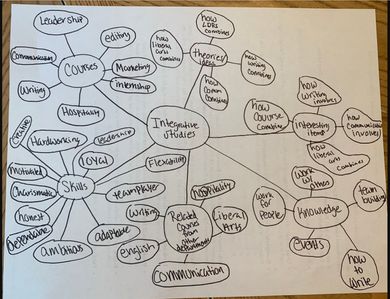 Leadership
editing
Communication
Courses
Marketing
internship
writing
Hospitality
how
LDRS
combines
how
liberal
arts
combines
theories/
ideas
how
writing
combines
how
comm
combines
Integrative
studies
how
course
combine
interesting
items
how
writing
involves
how
communication
involves
how
liberal
arts combines
creative
Hardworking
leadership
Motivated
LOYAL
Charismatic
Skills
honest
Dependable
ambitious
adaptable
teamplayer
Flexability
hospitality
writing
Related
Courses
from
other
departments
Liberal
Arts
english
Communication
work
for
People
work w/
others
Knowledge
team
building
events
how
to
write